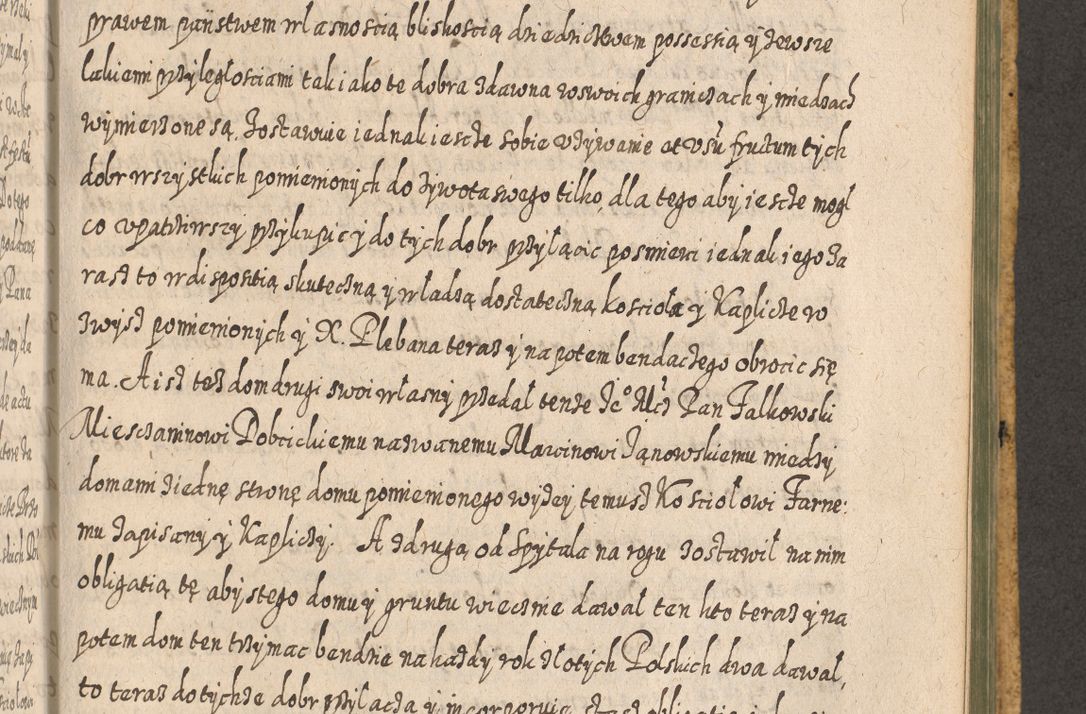 prawem państwem własnoscią bliskoscią dziedzictwem possessią y zewsze
lakiemi przyległosciami tak iako te dobra zdawna wswoich gramczach y miedzach
wymierzone są. Zostawuie iednak iescże sobie vżÿwanie et vsũ fructum tÿch
dobr wszystkich pomienionÿch do żÿwota swego tilko, dla tego aby iescże mogł
co vpatrżiwszy przykupuc y do tÿch dobr przyłącic posmierci iednak iego za
rasz to w dispositią skutecżną y władzą dostatecżną koscioła y Kaplicże w
zwysz pomienionÿch y X. Plebana terasz y na potem bendącżego obrocic się
ma. A isz tesz dom drugi swoi własny przedał tenże Jeº Mcż Pan Falkowski
Miescżaninowi Dobcickiemu nazwanemu Marcinowi Janowskiemu miedzy
domami z iednę stronę domu pomienionego wyżey temusz Kosciołowi Farne:
mu zapisany y Kaplicży. A z drugą od szpytala na rogu zostawił na nim
obligatią tę aby s tego domu y gruntu wiecżnie dawał ten kto terasz y na
potem dom ten trzymac bendzie na każdy rok złotÿch Polskich dwa dawał,
to terasz do tychże dobr przyłącża y incorporuie